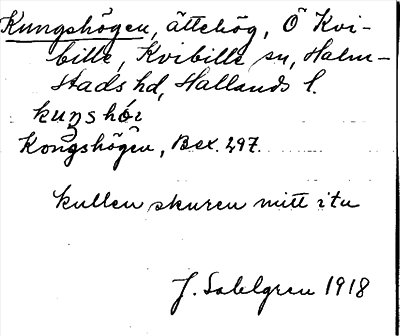 Kungshögen, ättehög, Ö Kvi-
bille, Kvibille sn, Halm-
stads hd, Hallands l.
kuŋshör
Kongshögen, Bex. 297.
kullen skuren mitt itu
J. Sahlgren 1918